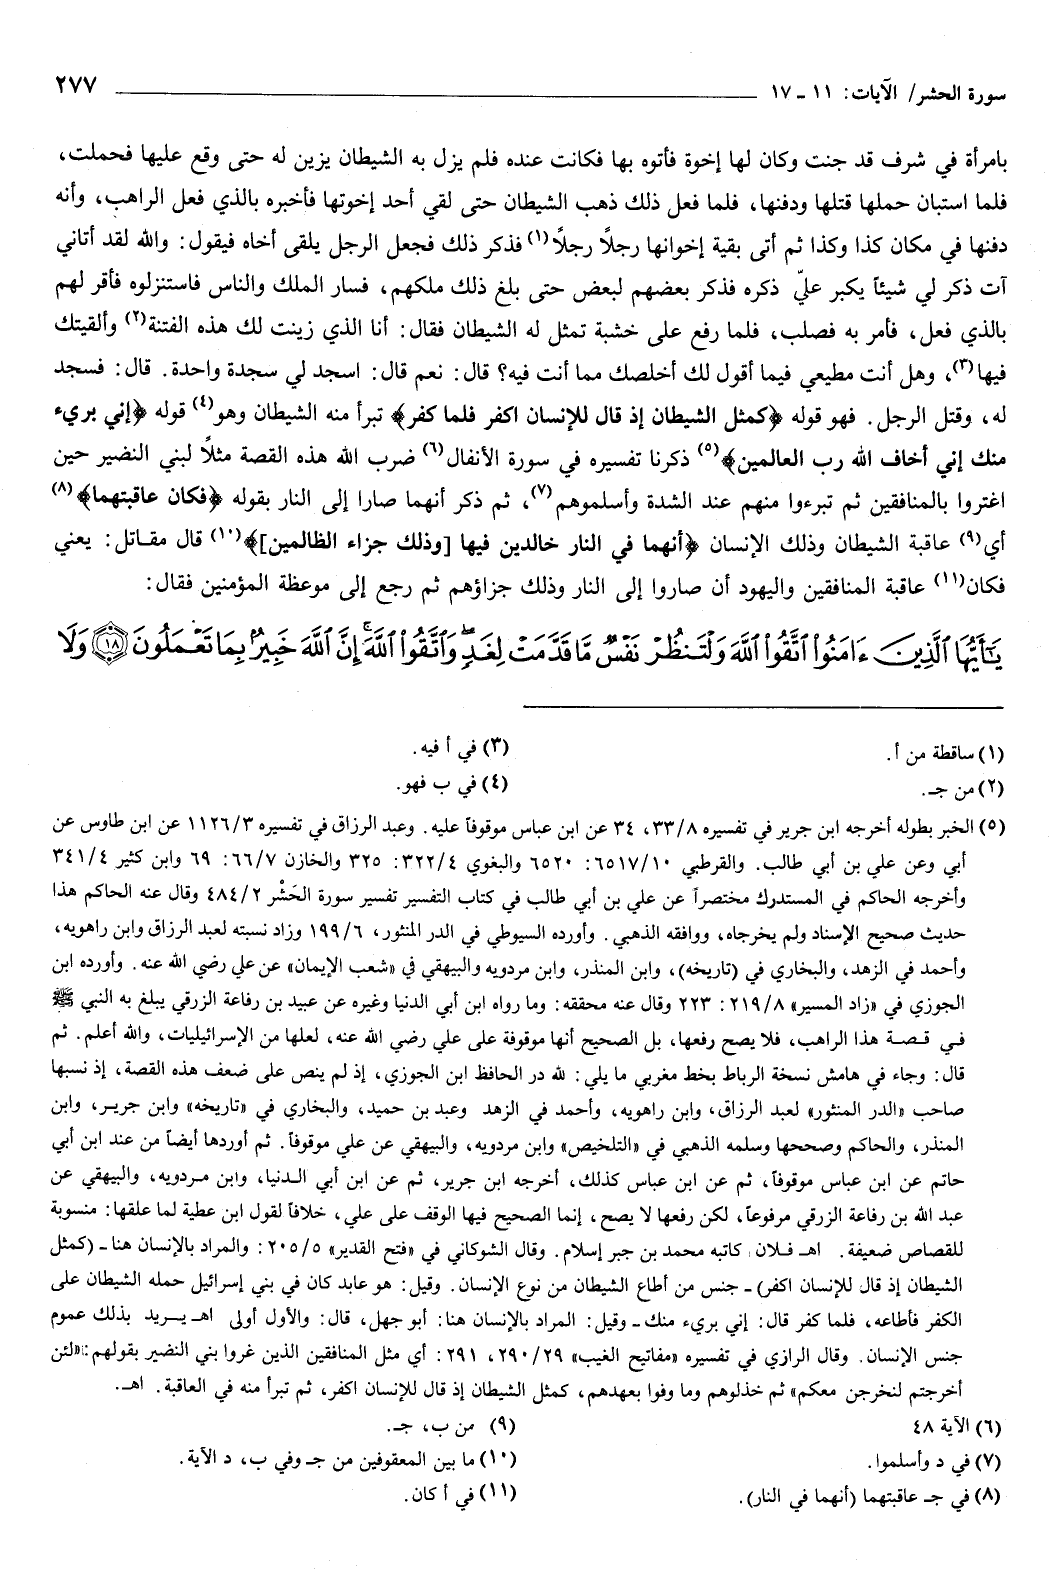 سورة الحشر/ الآيات: ١١ ـ ١٧ ٢٧٧
بامرأة في شرف قد جنت وكان لها إخوة فأتوه بها فكانت عنده فلم يزل به الشيطان يزين له حتى وقع عليها فحملت،
فلما استبان حملها قتلها ودفنها، فلما فعل ذلك ذهب الشيطان حتى لقي أحد إخوتها فأخبره بالذي فعل الراهب، وأنه
دفنها في مكان كذا وكذا ثم أتى بقية إخوانها رجلاً رجلاً(١) فذكر ذلك فجعل الرجل يلقى أخاه فيقول: والله لقد أتاني
آت ذكر لي شيئاً يكبر عليّ ذكره فذكر بعضهم لبعض حتى بلغ ذلك ملكهم، فسار الملك والناس فاستنزلوه فأقر لهم
بالذي فعل، فأمر به فصلب، فلما رفع على خشبة تمثل له الشيطان فقال: أنا الذي زينت لك هذه الفتنة(٢) وألقيتك
فيها(٣)، وهل أنت مطيعي فيما أقول لك أخلصك مما أنت فيه؟ قال: نعم قال: اسجد لي سجدة واحدة. قال: فسجد
له، وقتل الرجل. فهو قوله ﴿كمثل الشيطان إذ قال للإنسان اكفر فلما كفر﴾ تبرأ منه الشيطان وهو(٤) قوله ﴿إني بريء
منك إني أخاف الله رب العالمين﴾(٥) ذكرنا تفسيره في سورة الأنفال(٦) ضرب الله هذه القصة مثلاً لبني النضير حين
اغتروا بالمنافقين ثم تبرءوا منهم عند الشدة وأسلموهم(٧)، ثم ذكر أنهما صارا إلى النار بقوله ﴿فكان عاقبتهما﴾(٨)
أي(٩) عاقبة الشيطان وذلك الإنسان ﴿أنهما في النار خالدين فيها [وذلك جزاء الظالمين]﴾(١٠) قال مقاتل: يعني
فكان(١١) عاقبة المنافقين واليهود أن صاروا إلى النار وذلك جزاؤهم ثم رجع إلى موعظة المؤمنين فقال:
يَٰٓأَيُّهَا ٱلَّذِينَ ءَامَنُواْ ٱتَّقُواْ ٱللَّهَ وَلْتَنظُرْ نَفْسٌ مَّا قَدَّمَتْ لِغَدٍ وَٱتَّقُواْ ٱللَّهَ إِنَّ ٱللَّهَ خَبِيرٌۢ بِمَا تَعْمَلُونَ ﴿١٨﴾ وَلَا
(١) ساقطة من أ. (٣) في أ فيه.
(٢) من جـ. (٤) في ب فهو.
(٥) الخبر بطوله أخرجه ابن جرير في تفسيره ٣٣/٨، ٣٤ عن ابن عباس موقوفاً عليه. وعبد الرزاق في تفسيره ١١٢٦/٣ عن ابن طاوس عن
أبي وعن علي بن أبي طالب. والقرطبي ٦٥١٧/١٠: ٦٥٢٠ والبغوي ٣٢٢/٤: ٣٢٥ والخازن ٦٦/٧: ٦٩ وابن كثير ٣٤١/٤
وأخرجه الحاكم في المستدرك مختصراً عن علي بن أبي طالب في كتاب التفسير تفسير سورة الحَشْر ٤٨٤/٢ وقال عنه الحاكم هذا
حديث صحيح الإسناد ولم يخرجاه، ووافقه الذهبي. وأورده السيوطي في الدر المنثور، ١٩٩/٦ وزاد نسبته لعبد الرزاق وابن راهويه،
وأحمد في الزهد، والبخاري في (تاريخه)، وابن المنذر، وابن مردويه والبيهقي في «شعب الإيمان» عن علي رضي الله عنه. وأورده ابن
الجوزي في «زاد المسير» ٢١٩/٨: ٢٢٣ وقال عنه محققه: وما رواه ابن أبي الدنيا وغيره عن عبيد بن رفاعة الزرقي يبلغ به النبي ﷺ
في قصة هذا الراهب، فلا يصح رفعها، بل الصحيح أنها موقوفة على علي رضي الله عنه، لعلها من الإسرائيليات، والله أعلم. ثم
قال: وجاء في هامش نسخة الرباط بخط مغربي ما يلي: لله در الحافظ ابن الجوزي، إذ لم ينص على ضعف هذه القصة، إذ نسبها
صاحب «الدر المنثور» لعبد الرزاق، وابن راهويه، وأحمد في الزهد وعبد بن حميد، والبخاري في «تاريخه» وابن جرير، وابن
المنذر، والحاكم وصححها وسلمه الذهبي في «التلخيص» وابن مردويه، والبيهقي عن علي موقوفاً. ثم أوردها أيضاً من عند ابن أبي
حاتم عن ابن عباس موقوفاً، ثم عن ابن عباس كذلك، أخرجه ابن جرير، ثم عن ابن أبي الدنيا، وابن مردويه، والبيهقي عن
عبد الله بن رفاعة الزرقي مرفوعاً، لكن رفعها لا يصح، إنما الصحيح فيها الوقف على علي، خلافاً لقول ابن عطية لما علقها: منسوبة
للقصاص ضعيفة. اهـ فلان كاتبه محمد بن جبر إسلام. وقال الشوكاني في «فتح القدير» ٢٠٥/٥: والمراد بالإنسان هنا ـ (كمثل
الشيطان إذ قال للإنسان اكفر) ـ جنس من أطاع الشيطان من نوع الإنسان. وقيل: هو عابد كان في بني إسرائيل حمله الشيطان على
الكفر فأطاعه، فلما كفر قال: إني بريء منك ـ وقيل: المراد بالإنسان هنا: أبو جهل، قال: والأول أولى اهـ يريد بذلك عموم
جنس الإنسان. وقال الرازي في تفسيره «مفاتيح الغيب» ٢٩٠/٢٩، ٢٩١: أي مثل المنافقين الذين غروا بني النضير بقولهم: «لئن
أخرجتم لنخرجن معكم» ثم خذلوهم وما وفوا بعهدهم، كمثل الشيطان إذ قال للإنسان اكفر، ثم تبرأ منه في العاقبة. اهـ.
(٦) الآية ٤٨ (٩) من ب، جـ.
(٧) في د وأسلموا. (١٠) ما بين المعقوفين من جـ وفي ب، د الآية.
(٨) في جـ عاقبتهما (أنهما في النار). (١١) في أ كان.